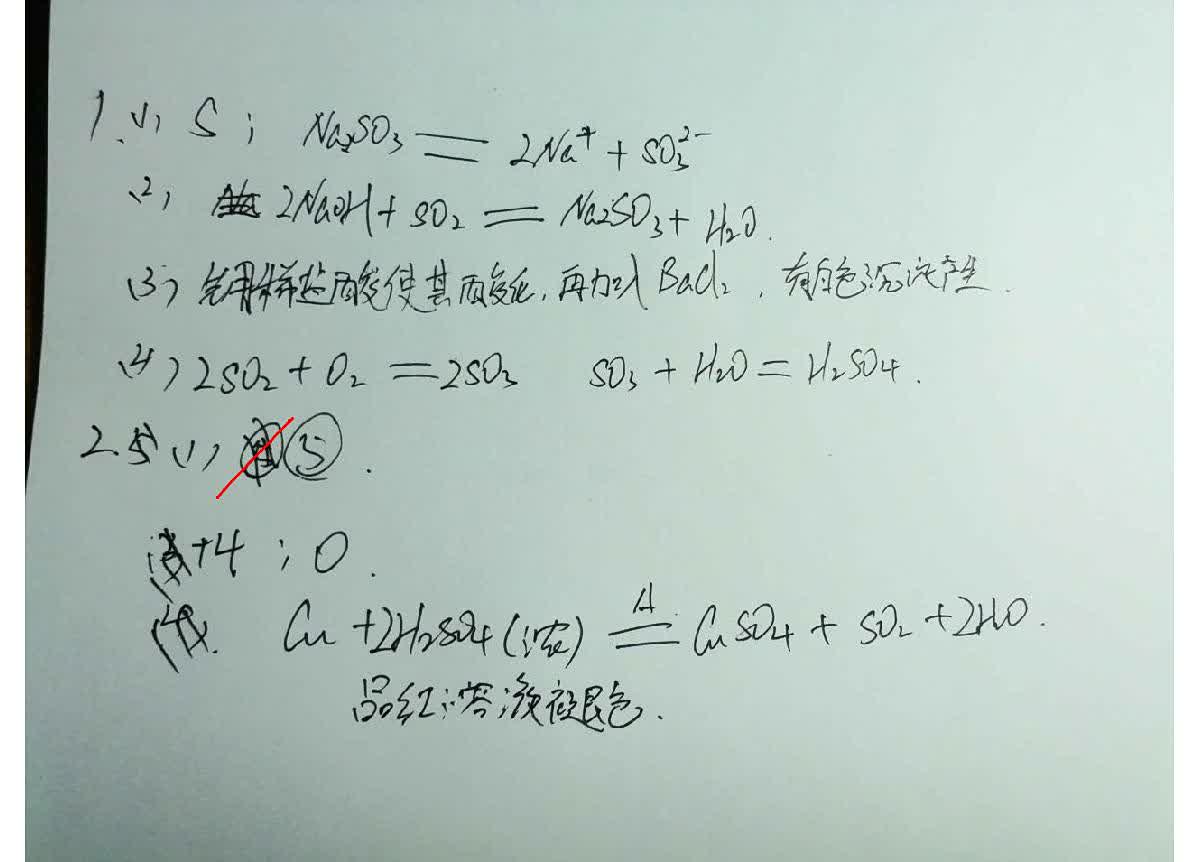 1.(1) S; Na₂SO₃ == 2Na⁺ + SO₃²⁻
(2) 2NaOH + SO₂ == Na₂SO₃ + H₂O.
(3) 先用稀盐酸使其酸化,再加入BaCl₂,有白色沉淀产生.
(4) 2SO₂ + O₂ == 2SO₃ SO₃ + H₂O = H₂SO₄.
2. (1) ⑤.
+4; 0.
Cu + 2H₂SO₄(浓) =△= CuSO₄ + SO₂ + 2HO.
品红溶液被退色.